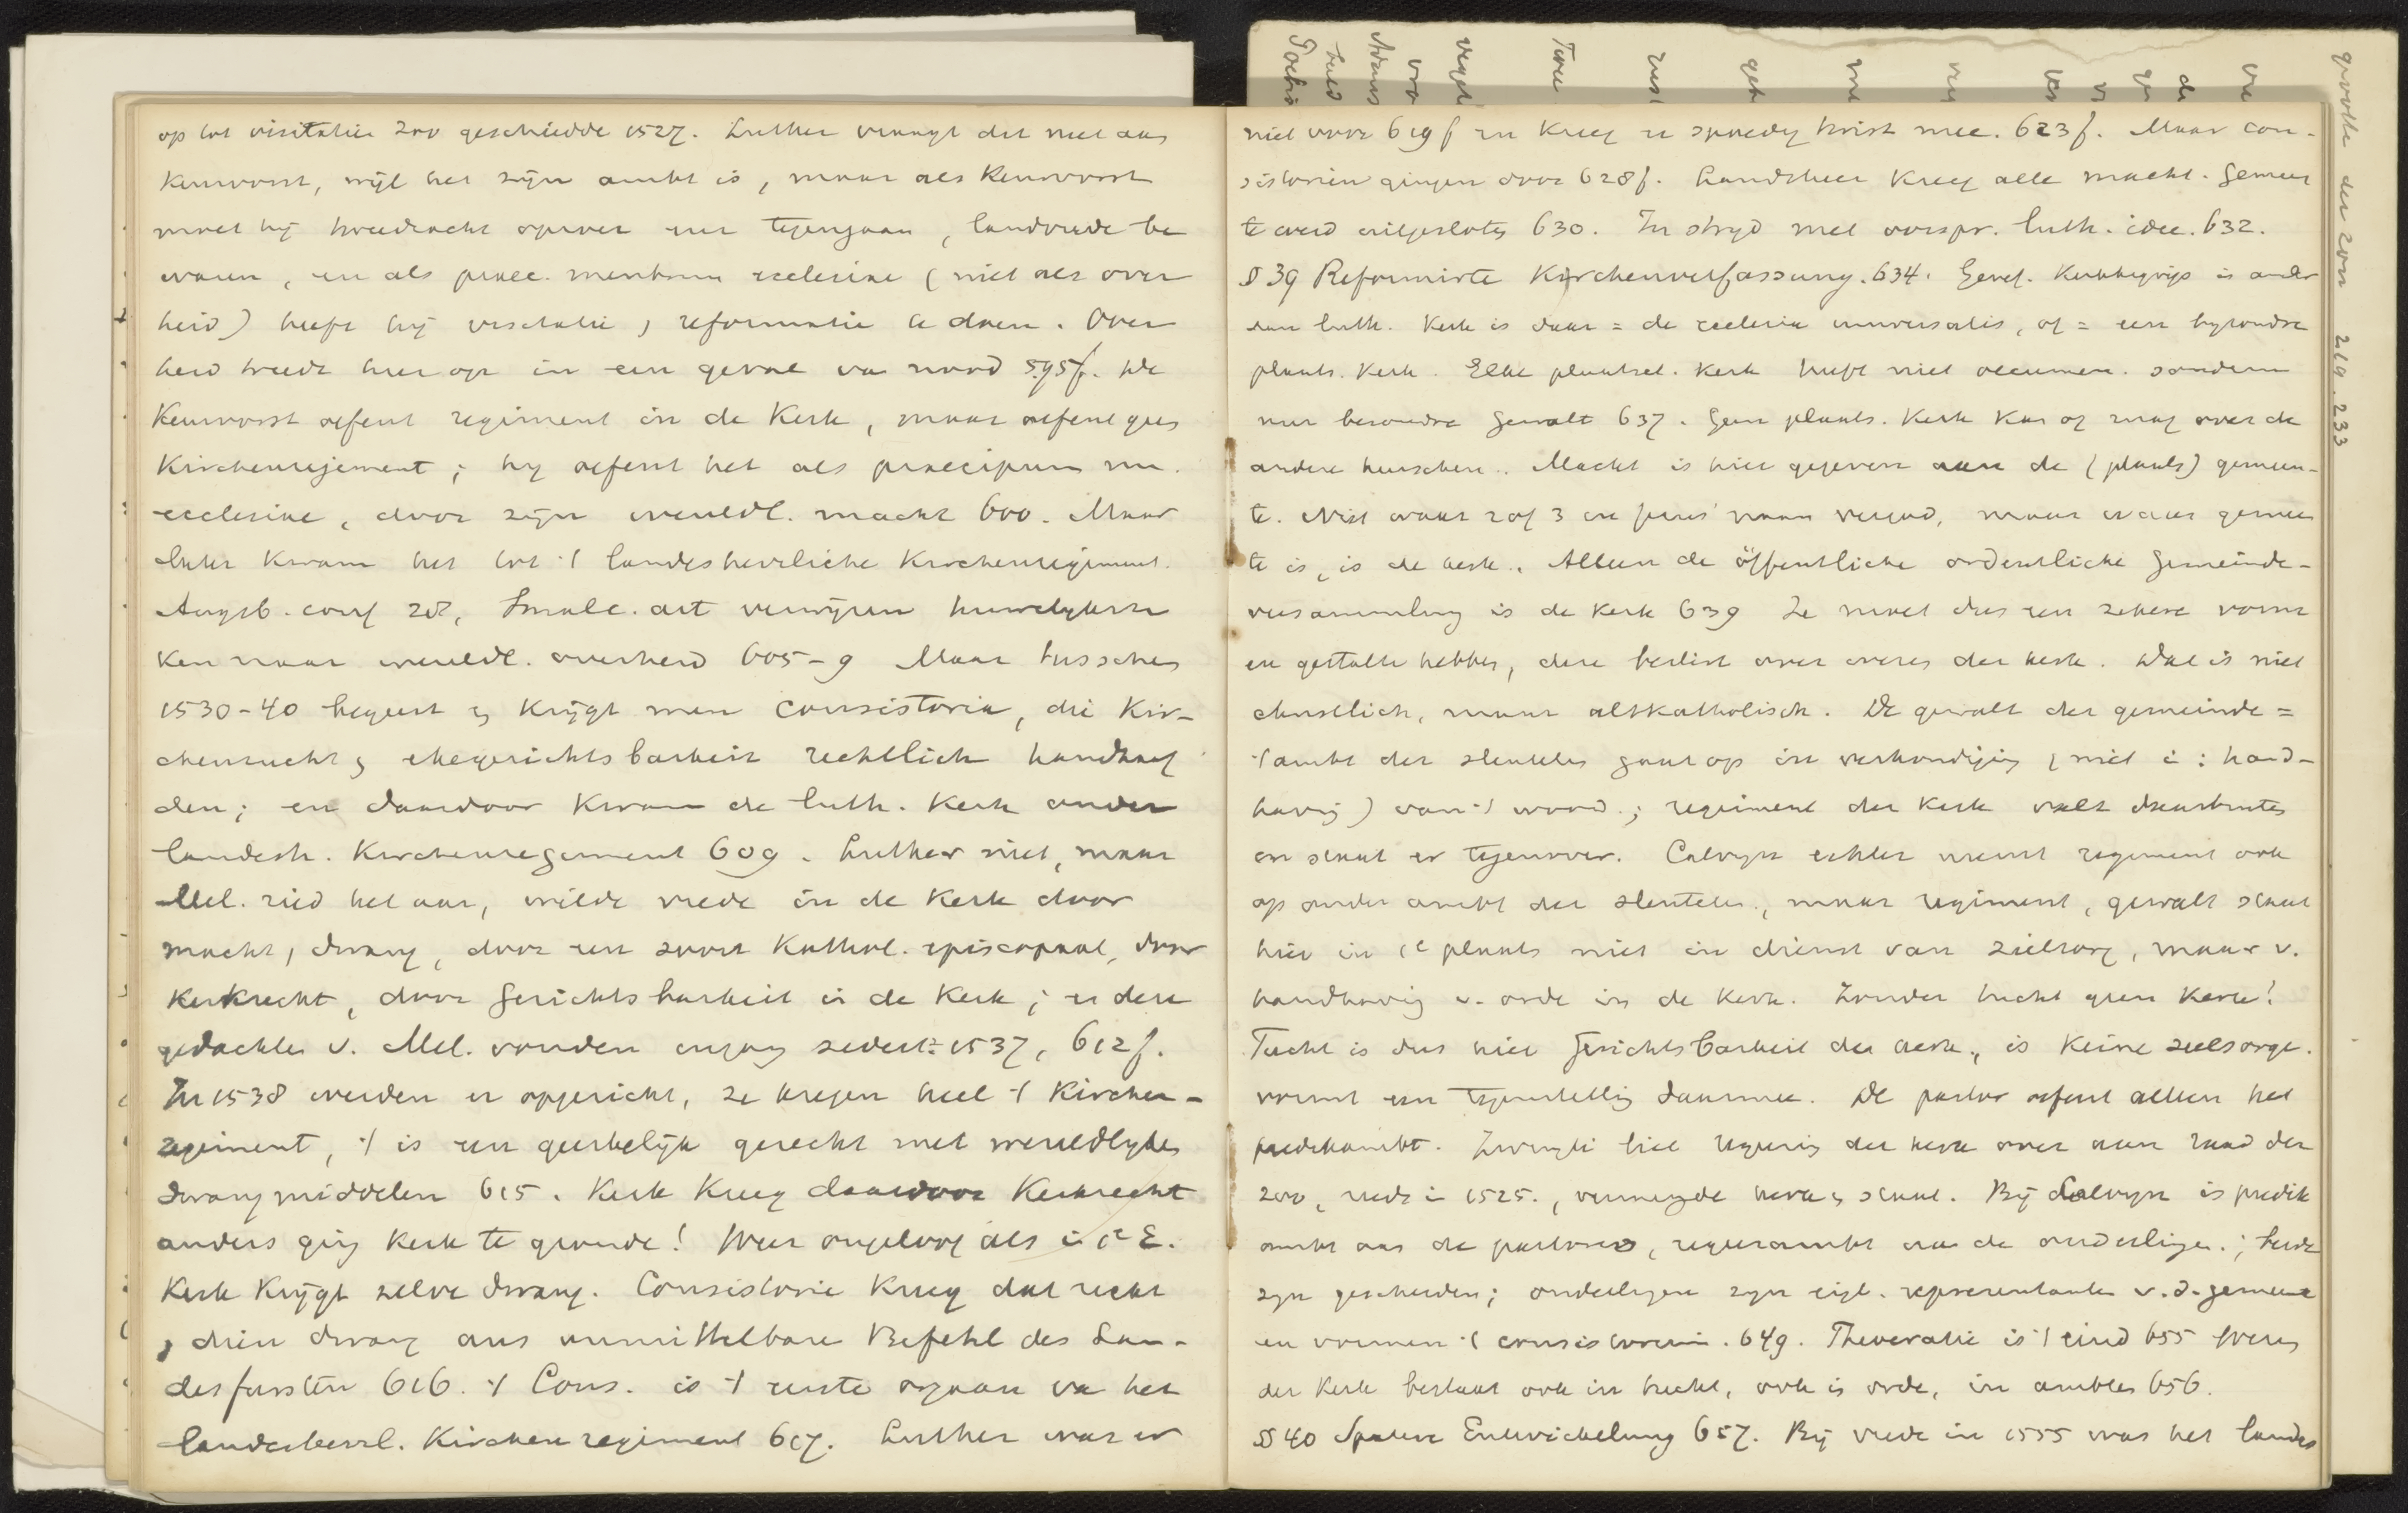 op tot visitatie zoo geschiedde 1527. Luther vraagt dit niet aan
Keurvorst, wijl het zijn ambt is, maar als Keurvorst
moet hij tweedracht oproer enz tegengaan, landvrede be
waren, en als praec. membrum ecclesiae (niet als over
heid) heeft hij visitatie, reformatie te doen. Over
heid treedt hier op in een geval van nood 595f. De
Keurvorst oefent regiment in de Kerk, maar oefent geen
Kirchenregiment; hij oefent het als praecipuum m.
ecclesiae, door zijn wereldl. macht 600. Maar
later kwam het tot 't landesherrliche Kirchenregiment.
Augsb. conf 28, Smalc. art verwijzen huwelijksza
ken naar wereldl. overheid 605-9 Maar tusschen
1530-40 begeert en krijgt men consistoria, die Kir-
chenzucht en ehegerichtsbarkeit rechtlich handhaaf
den; en daardoor kwam de luth. Kerk onder
landesh. Kirchenregiment 609. Luther niet, maar
Mel. ried het aan, wilde vrede in de Kerk door
macht, dwang, door een soort Kathol. episcopaat, door
Kerkrecht, door Gerichtsbarkeit in de Kerk; en deze
gedachten v. Mel. vonden ingang sedert 1537, 612f.
In 1538 werden er opgericht, ze kregen heel 't Kirchen-
regiment, 't is een geestelijk gerecht met wereldlyke
dwangmiddelen 615. Kerk kreeg daardoor Kerkrecht
anders ging Kerk te gronde! Weer ongeloof als in 1e E.
Kerk krijgt zelve dwang. Consistorie kreeg dat recht
, dien dwang aus unmittelbare Befehl des Lan-
desfursten 616. 't Cons. is 't eerste orgaan van het
landesherrl. Kirchenregiment 617. Luther was er
niet voor 619f en kreeg er spoedig twist mee. 623f. Maar con-
sistoriën gingen door 628f. Landsheer kreeg alle macht. Gemeen
te werd uitgesloten 630. In strijd met oorspr. luth. idee. 632.
§ 39 Reformirte Kirchenverfassung. 634. Geref. Kerkbegrip is ander
dan luth. Kerk is daar = de ecclesia universalis, of = een byzondre
plaats. Kerk. Elke plaatsel. Kerk heeft niet oecumen. sondern
nur besondre Gewalt 637. Geen plaats. Kerk kan of mag over de
andere heerschen. Macht is hier gegeven aan de (plaats) gemeen-
te. Niet waar 2 of 3 in Jezus' naam vergad, maar waar gemeen
te is, is de kerk. Alleen de öffentliche ordentliche Gemeinde-
versammlung is de Kerk 639 Ze moet dus een zekere vorm
en gestalte hebben, deze beslist over wezen der kerk. Dat is niet
christlich, maar altkatholisch. De gewalt der gemeinde =
't ambt der sleutelen gaat op in verkondiging (niet in: hand-
having) van 't woord.; regiment der Kerk valt daarbuiten
en staat er tegenover. Calvyn echter neemt regiment ook
op onder ambt der sleutelen, maar regiment, gewalt staat
hier in 1e plaats niet in dienst van zielzorg, maar v.
handhaving v. orde in de Kerk. Zonder tucht geen Kerk!
Tucht is dus hier Gerichtsbarkeit der kerk, is Keine seelsorge.
vormt een tegenstelling daarmee. De pastor oefent alleen het
predikambt. Zwingli liet regeering der kerk over aan raad der
200, reeds in 1525., vermengde kerk en staat. Bij Calvyn is predik
ambt aan de pastores, regeerambt aan de ouderlingen.; beide
zyn gescheiden; ouderlingen zyn eigl. representanten v. d. gemeente
en vormen 't consistorium. 649. Theocratie is 't eind 655 Wezen
der Kerk bestaat ook in tucht, ook in orde, in ambten 656.
§ 40 Spatere Entwickelung 657. Bij vrede in 1555 was het landes
grootte der zon 219. 233